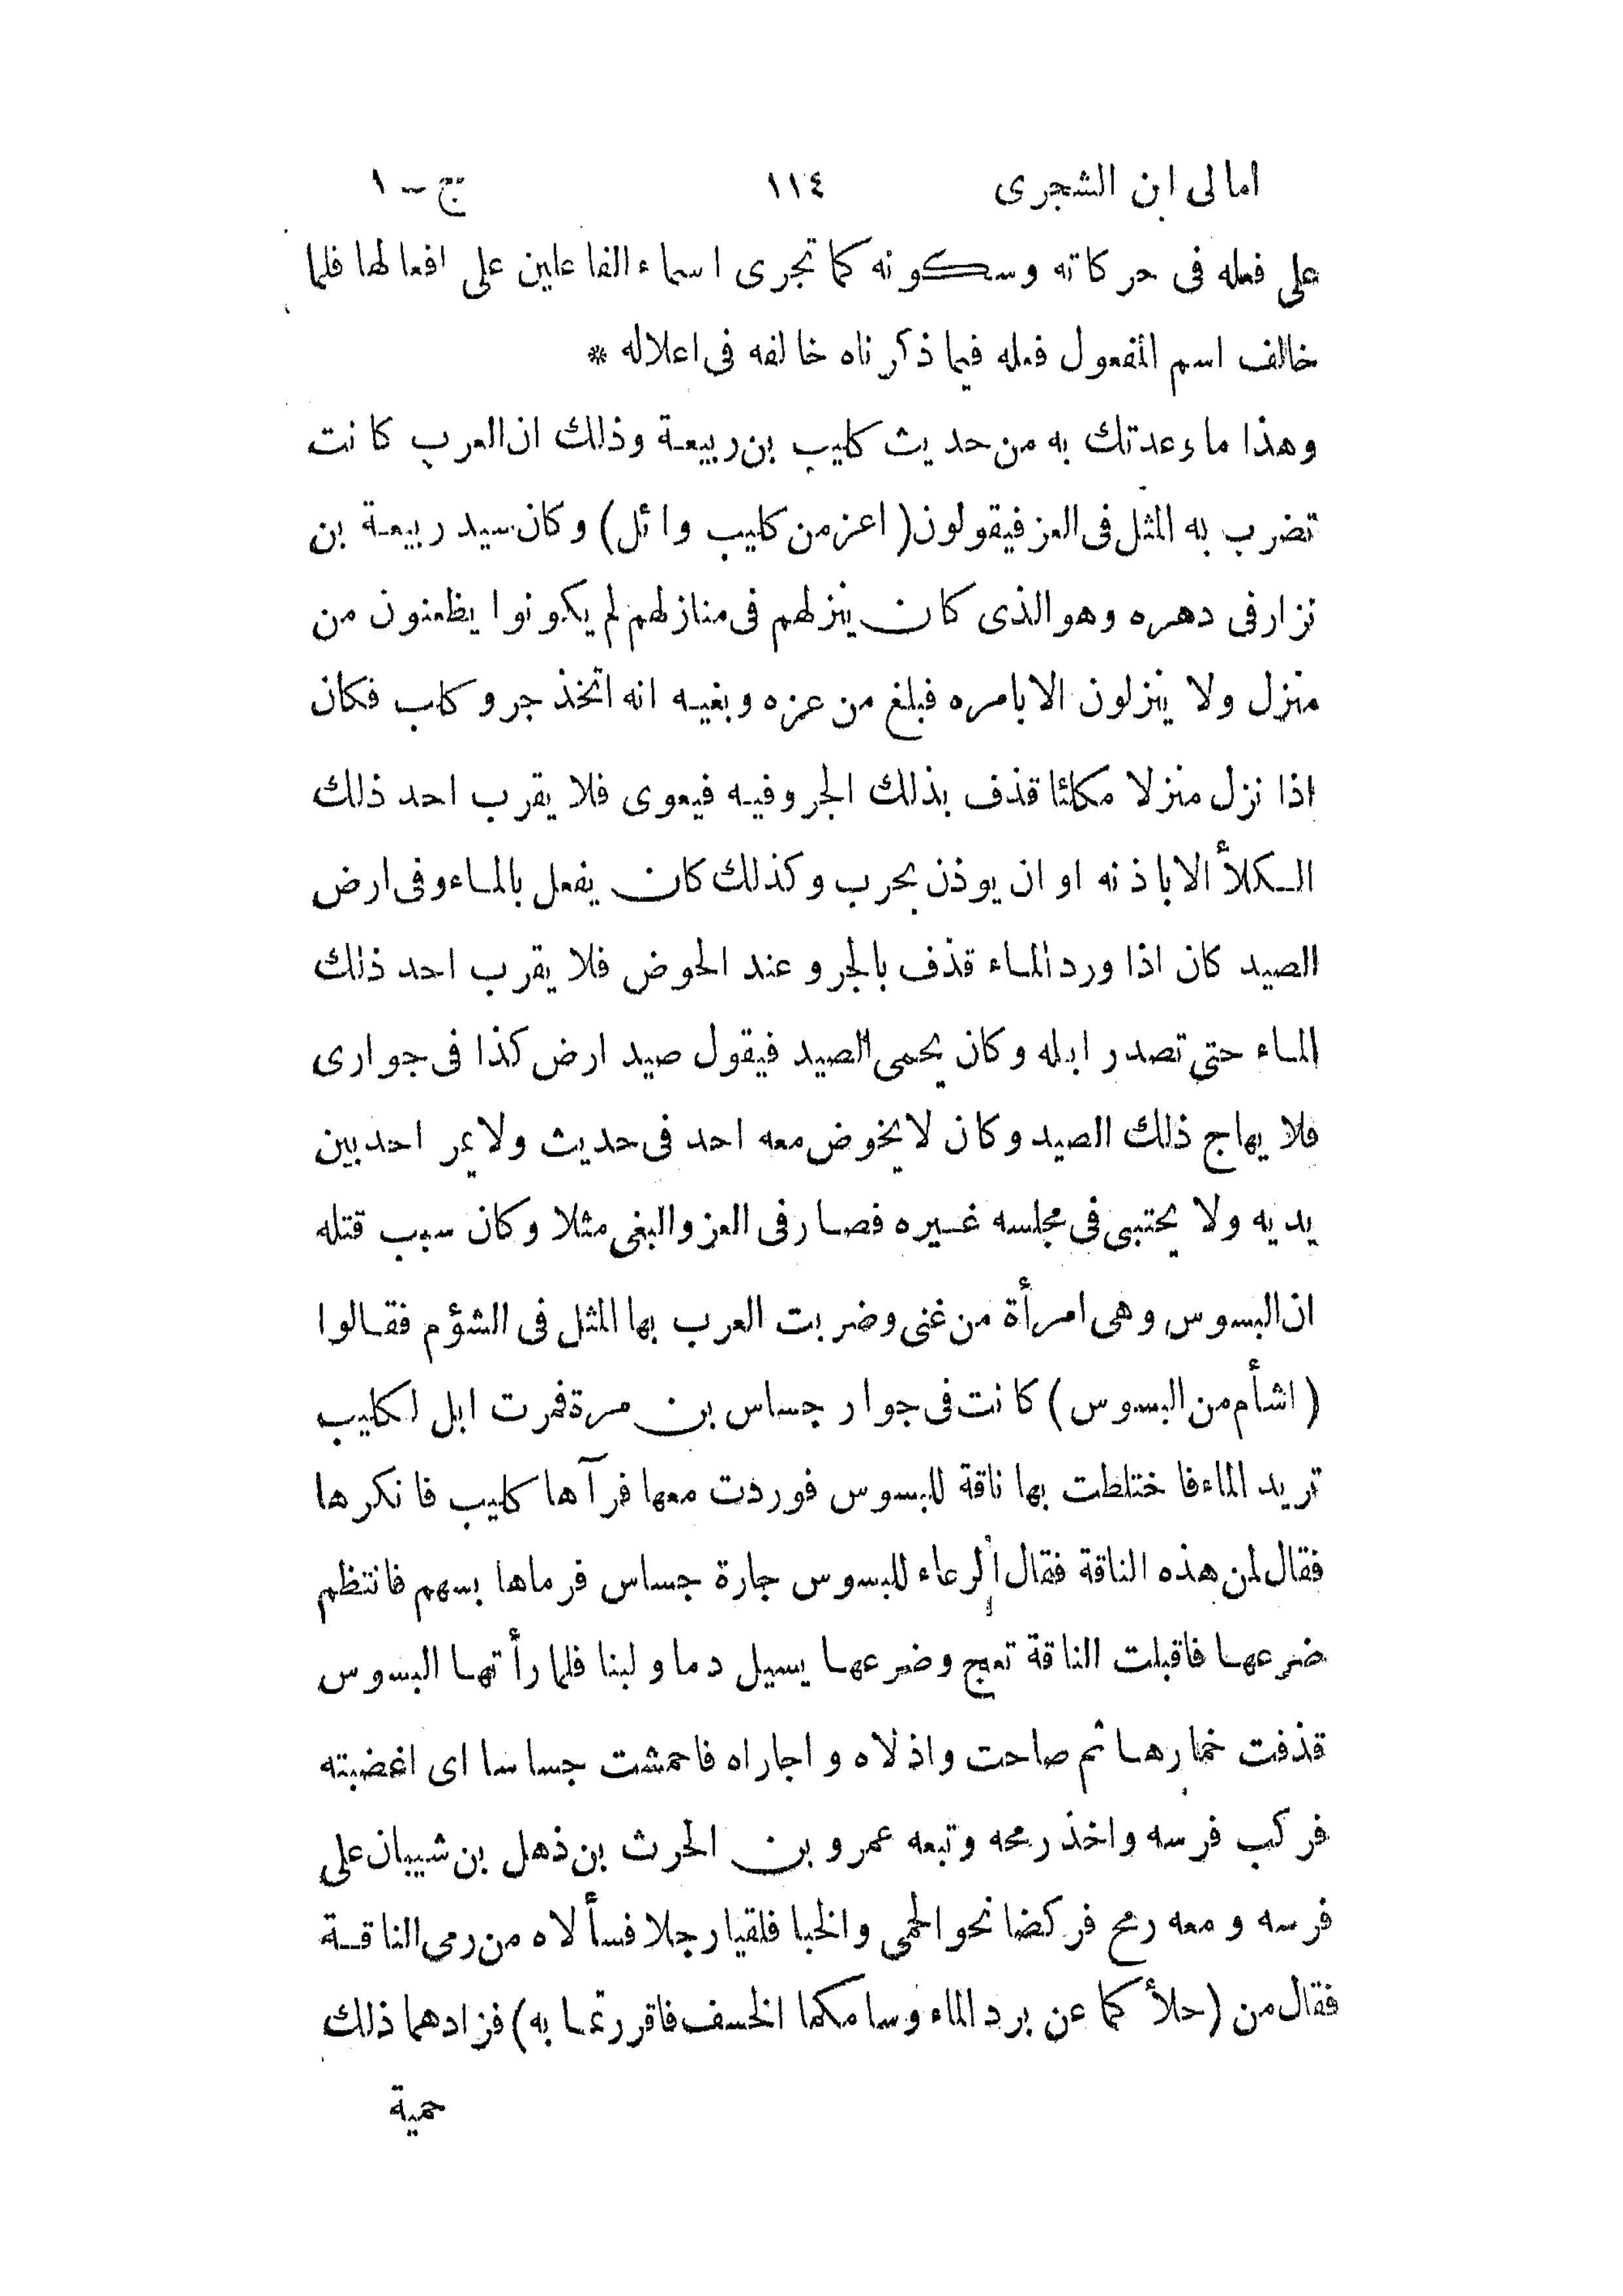 امالى ابن الشجرى ١١٤ ج – ١
على فعله فى حركاته وسكونه كما تجرى اسماء الفاعلين على افعالها فلما
خالف اسم المفعول فعله فيما ذكرناه خالفه فى اعلاله *
وهذا ما وعدتك به من حديث كليب بن ربيعة وذلك ان العرب كانت
تضرب به المثل فى العز فيقولون (اعز من كليب وائل) وكان سيد ربيعة بن
نزار فى دهره وهو الذى كان ينزلهم فى منازلهم لم يكونوا يظعنون من
منزل ولا ينزلون الا بامره فبلغ من عزه وبغيه انه اتخذ جرو كلب فكان
اذا نزل منزلا مكلئا قذف بذلك الجرو فيه فيعوى فلا يقرب احد ذلك
الكلأ الا باذنه او ان يوذن بحرب وكذلك كان يفعل بالماء وفى ارض
الصيد كان اذا ورد الماء قذف بالجرو عند الحوض فلا يقرب احد ذلك
الماء حتى تصدر ابله وكان يحمى الصيد فيقول صيد ارض كذا فى جوارى
فلا يهاج ذلك الصيد وكان لا يخوض معه احد فى حديث ولا يمر احد بين
يديه ولا يحتبى فى مجلسه غيره فصار فى العز والبغى مثلا وكان سبب قتله
ان البسوس وهى امرأة من غنى وضربت العرب بها المثل فى الشؤم فقالوا
(اشأم من البسوس) كانت فى جوار جساس بن مرة فمرت ابل لكليب
تريد الماء فاختلطت بها ناقة للبسوس فوردت معها فرآها كليب فانكرها
فقال لمن هذه الناقة فقال الرعاء للبسوس جارة جساس فرماها بسهم فانتظم
ضرعها فاقبلت الناقة تعج وضرعها يسيل دما ولبنا فلما رأتها البسوس
قذفت خمارها ثم صاحت واذلاه واجاراه فاحمشت جساسا اى اغضبته
فركب فرسه واخذ رمحه وتبعه عمرو بن الحرث بن ذهل بن شيبان على
فرسه ومعه رمح فركضا نحو الحمى والخبا فلقيا رجلا فسألاه من رمى الناقة
فقال من (حلأكما عن برد الماء وسامكما الخسف فاقررتما به) فزادهما ذلك
حمية